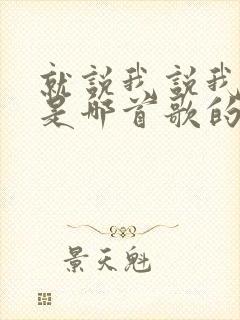 就说我,说我
是那首歌的
景天魁